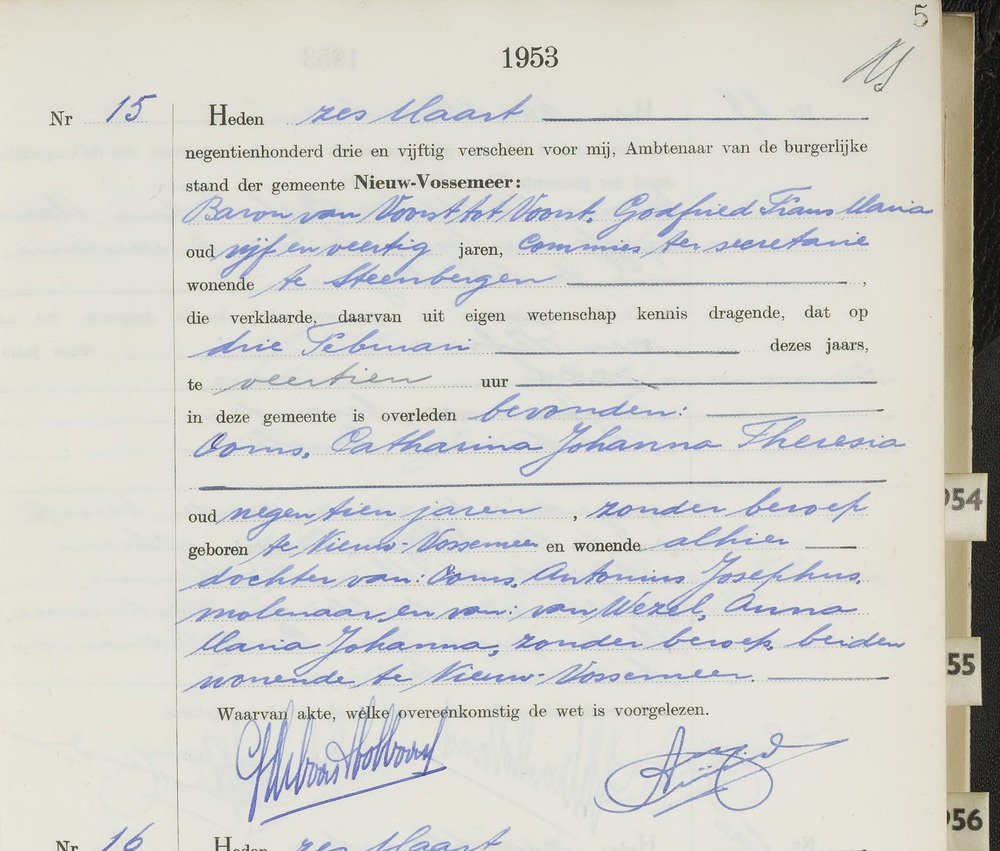 5
1953
Nr 15 Heden zes Maart
negentienhonderd drie en vijftig verscheen voor mij, Ambtenaar van de burgerlijke
stand der gemeente Nieuw-Vossemeer:
Baron van Voorst tot Voorst, Godfried Frans Maria
oud vijf en veertig jaren, Commies ter secretarie
wonende te Steenbergen ,
die verklaarde, daarvan uit eigen wetenschap kennis dragende, dat op
drie Februari dezes jaars,
te veertien uur
in deze gemeente is overleden bevonden:
Ooms, Catharina Johanna Theresia
oud negentien jaren , zonder beroep
geboren te Nieuw-Vossemeer en wonende alhier
dochter van: Ooms, Antonius Josephus,
molenaar, en van: van Wezel, Anna
Maria Johanna, zonder beroep, beiden
wonende te Nieuw-Vossemeer.
Waarvan akte, welke overeenkomstig de wet is voorgelezen.
Nr 16 Heden zes Maart
954
55
56